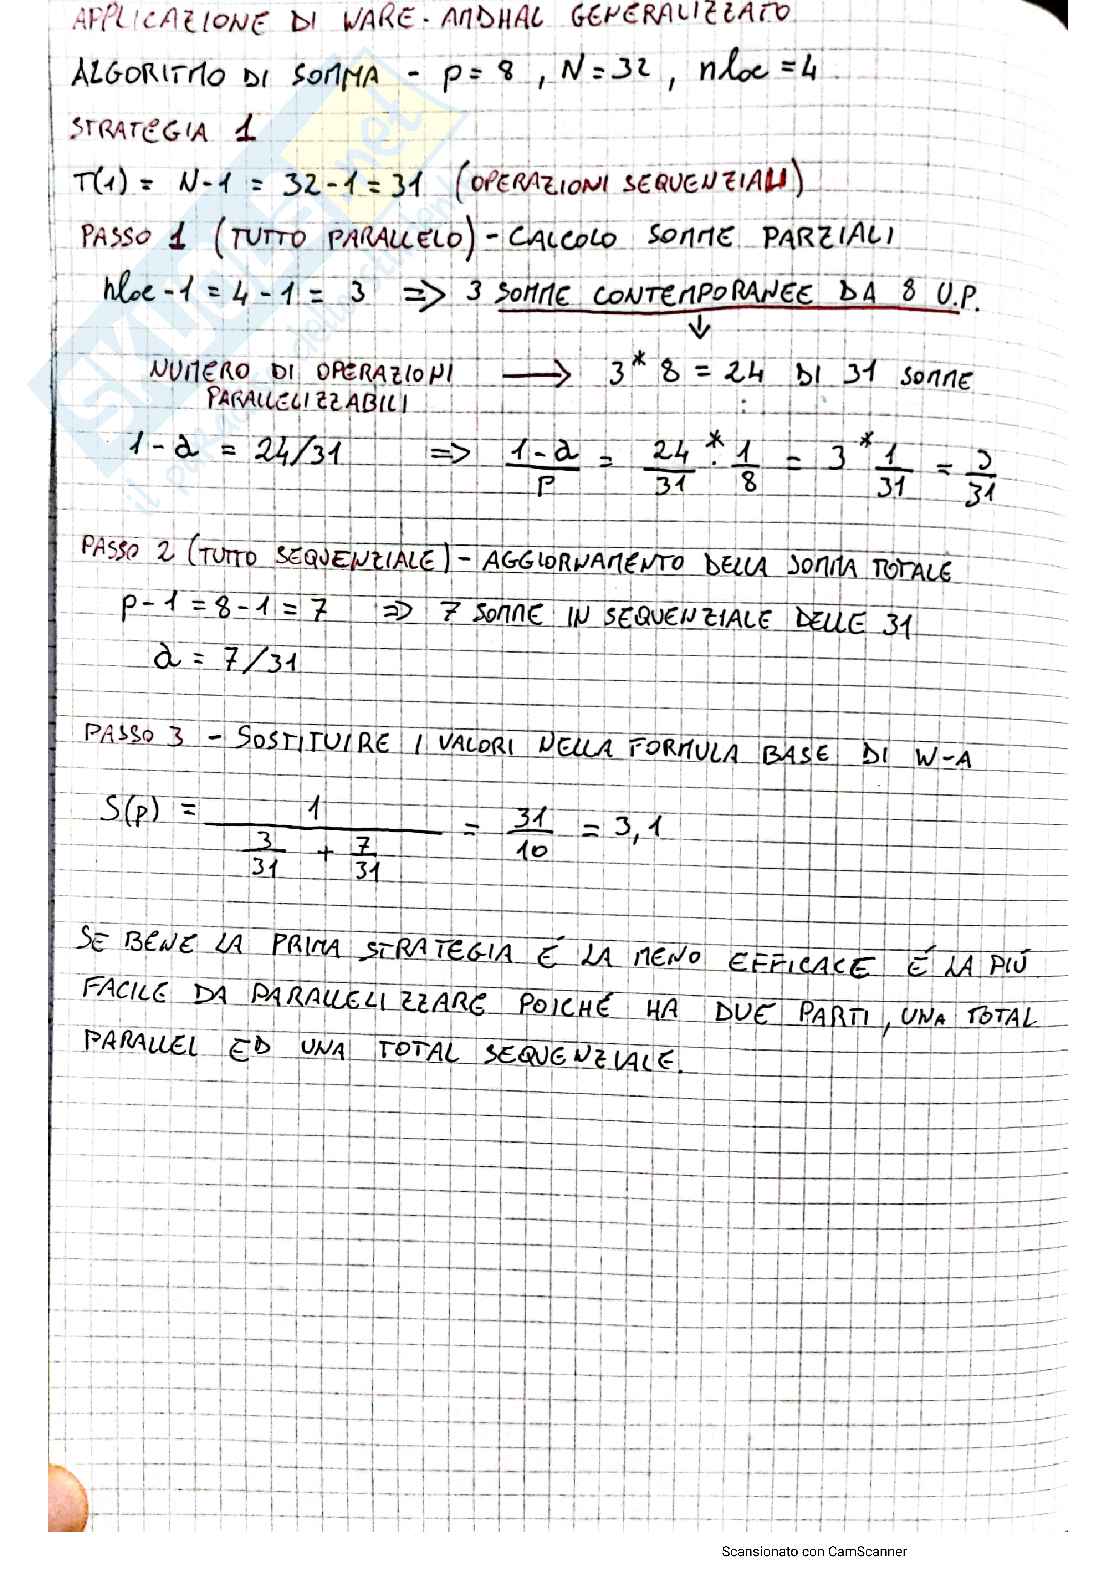 APPLICAZIONE DI WARE-AMDHAL GENERALIZZATO
ALGORITMO DI SOMMA - p=8, N=32, nloc=4
STRATEGIA 1
T(1) = N-1 = 32-1=31 (OPERAZIONI SEQUENZIALI)
PASSO 1 (TUTTO PARALLELO) - CALCOLO SOMME PARZIALI
nloc-1=4-1= 3 => 3 SOMME CONTEMPORANEE DA 8 U.P.
↓
NUMERO DI OPERAZIONI PARALLELIZZABILI → 3*8=24 DI 31 SOMME
1-α = 24/31 => (1-α)/P = 24/31 * 1/8 = 3 * 1/31 = 3/31
PASSO 2 (TUTTO SEQUENZIALE) - AGGIORNAMENTO DELLA SOMMA TOTALE
p-1=8-1=7 => 7 SOMME IN SEQUENZIALE DELLE 31
α = 7/31
PASSO 3 - SOSTITUIRE I VALORI NELLA FORMULA BASE DI W-A
S(p) = 1/(3/31 + 7/31) = 31/10 = 3,1
SE BENE LA PRIMA STRATEGIA É LA MENO EFFICACE É LA PIÚ
FACILE DA PARALLELIZZARE POICHÉ HA DUE PARTI, UNA TOTAL
PARALLEL ED UNA TOTAL SEQUENZIALE.
Scansionato con CamScanner